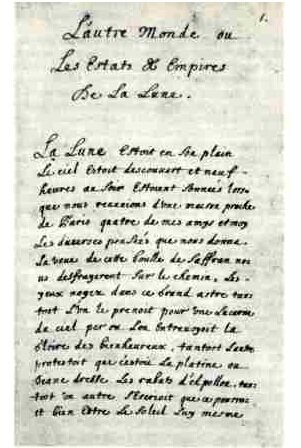 1.
L'autre Monde ou
Les Estats & Empires
De La Lune.
La Lune estoit en son plein
Le ciel estoit descouvert et neuf
heures du soir estoient sonnees lors
que nous revenions d'une maison proche
de Paris quatre de mes amys et moy
Les diverses pensées que nous donna
La veue de cette boulle de saffran no
us deffrayerent sur le chemin, Les
yeux noyez dans ce Grand astre tan
tost l'un le prenoit pour une Lucarne
du ciel par ou l'on entrevoyoit la
Gloire des bienheureux, tantost l'autre
protestoit que c'estoit La platine ou
Deane dresse Les rabats d'Apollon, tan
tost un autre s'escrioit que ce pourroit
et bien estre Le Soleil Luy mesme